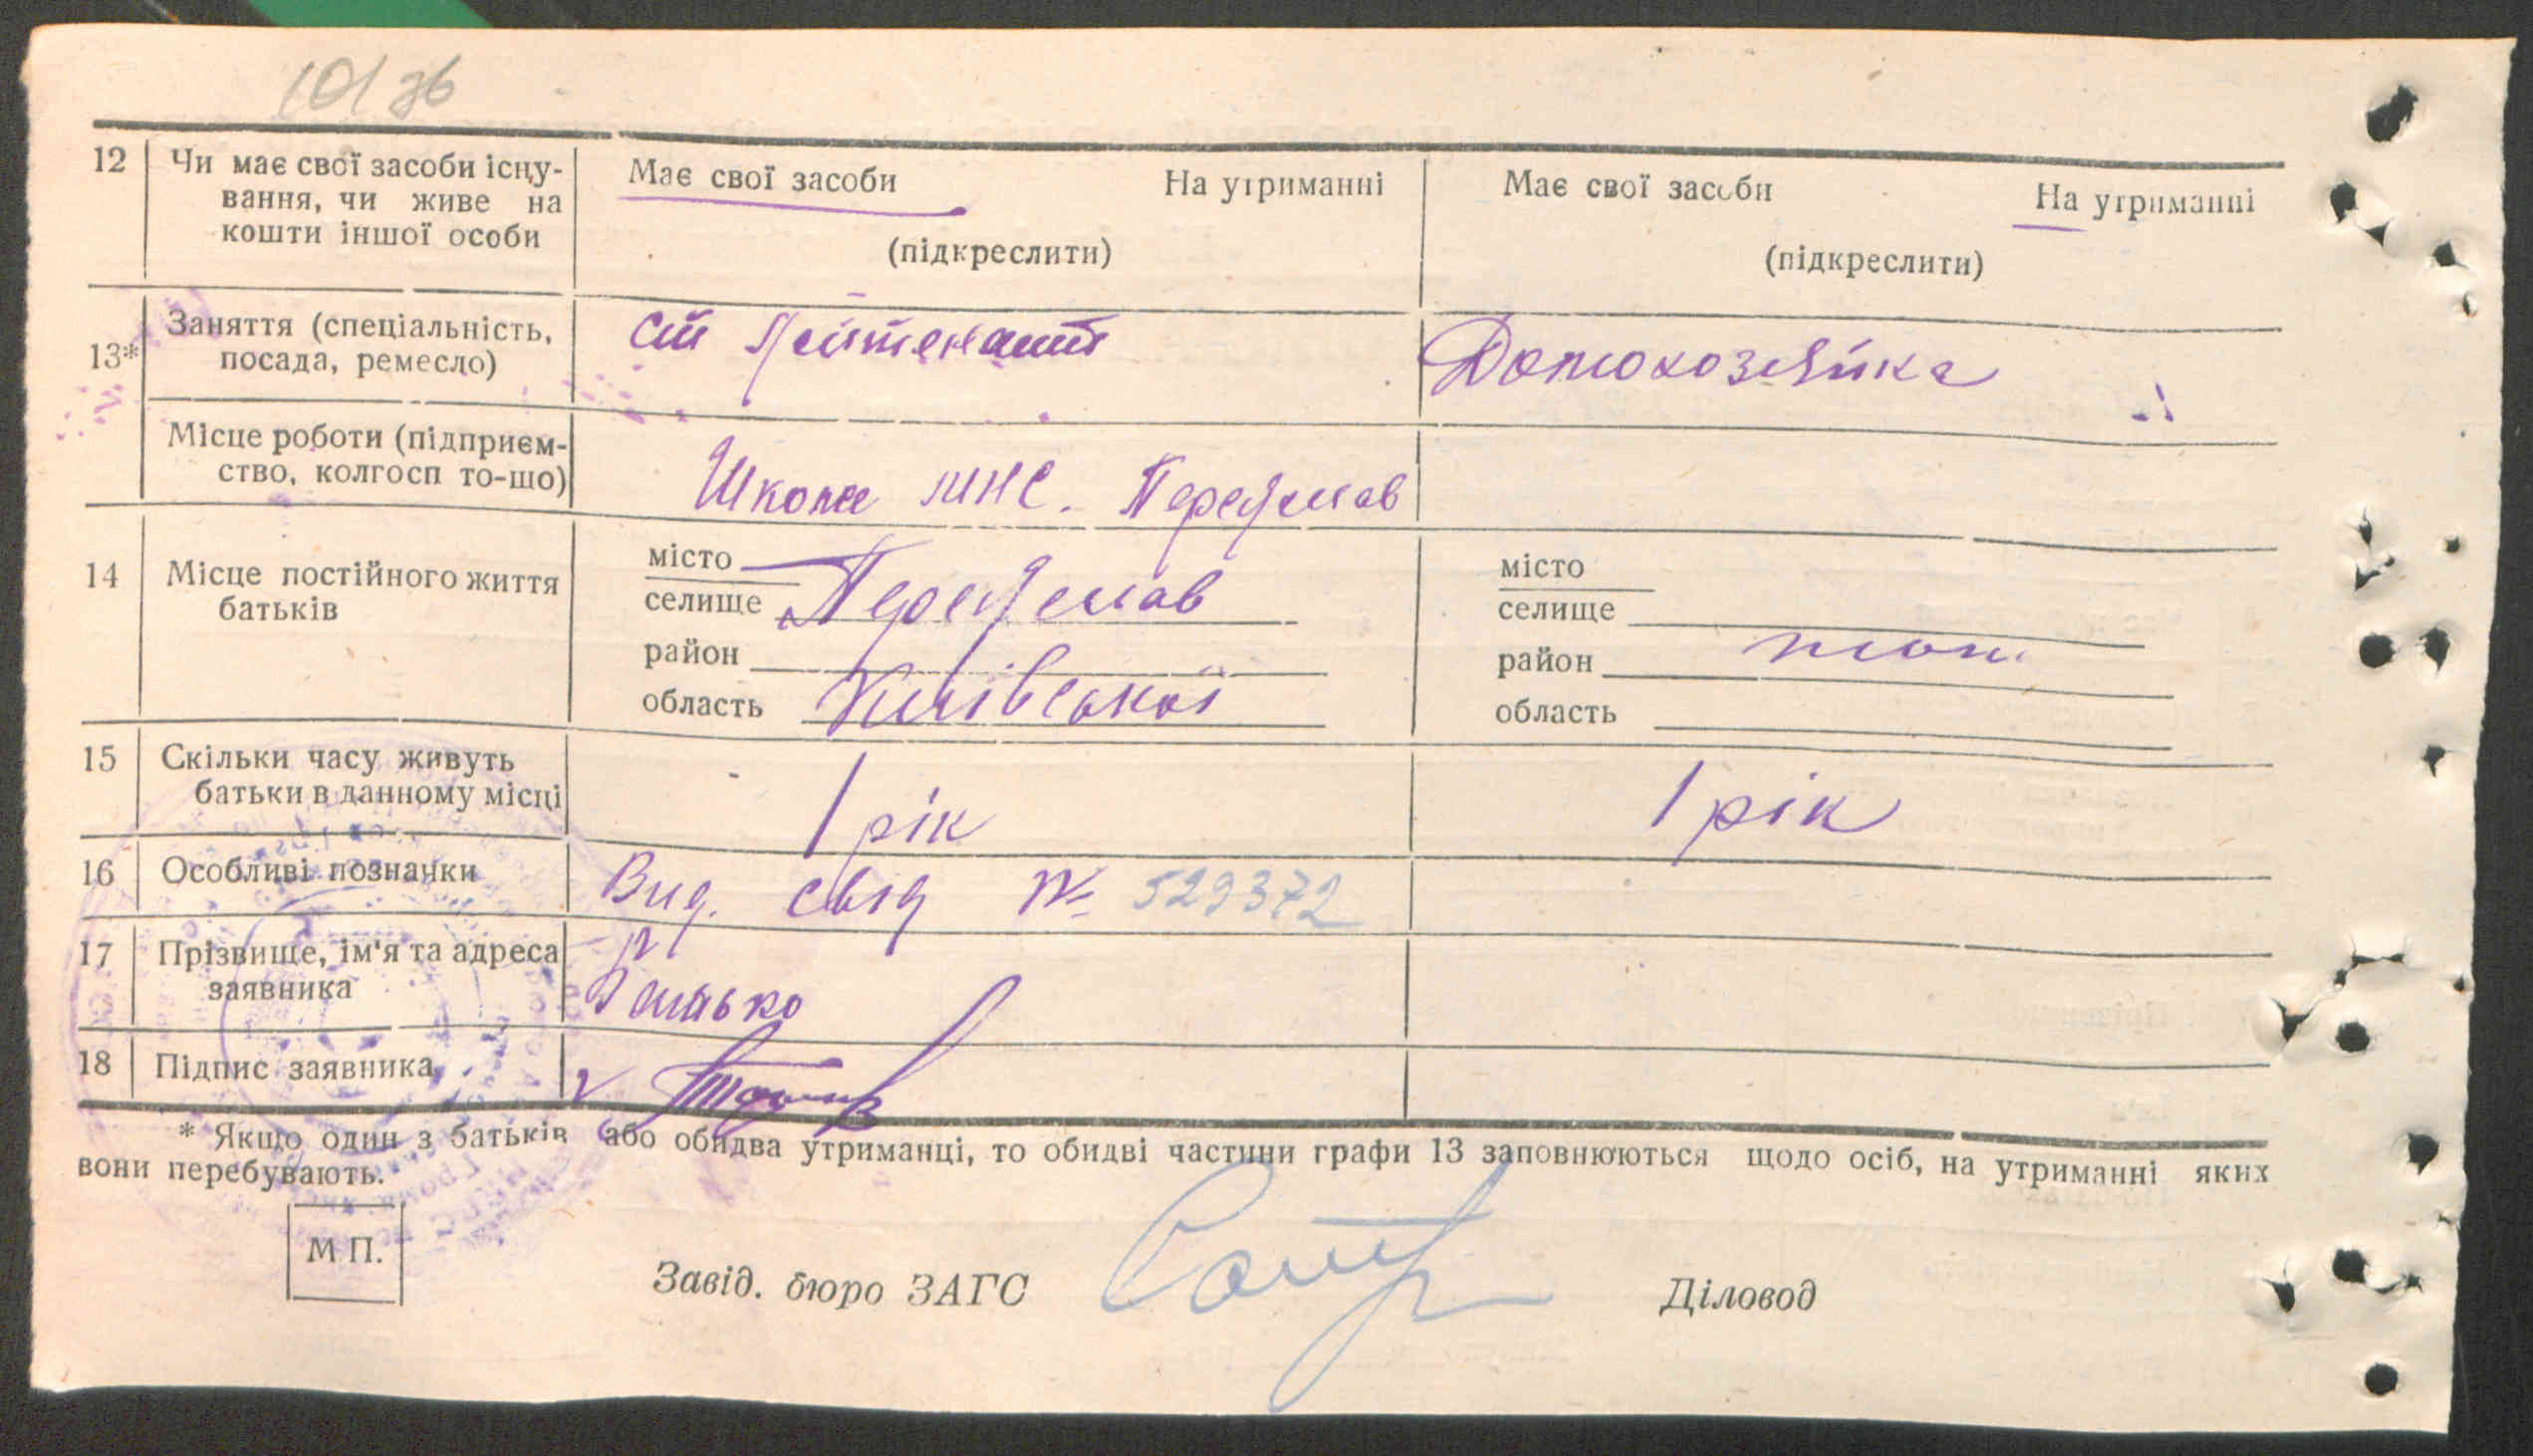 12
Чи має свої засоби існу-
вання, чи живе на
кошти іншої особи
Має свої засоби На утриманні
(підкреслити)
Має свої засоби На утриманні
(підкреслити)
13*
Заняття (спеціальність,
посада, ремесло)
ст Лейтенант
Домохозяйка
Місце роботи (підприєм-
ство, колгосп то-що)
Школа МНС. Переяслав
14
Місце постійного життя
батьків
місто
селище Переяслав
район
область Київської
місто
селище
район
область
15
Скільки часу живуть
батьки в данному місці
1 рік
1 рік
16
Особливі позначки
Вид. свід № 529372
17
Прізвище, ім'я та адреса
заявника
батько
18
Підпис заявника
* Якщо один з батьків або обидва утриманці, то обидві частини графи 13 заповнюються щодо осіб, на утриманні яких
вони перебувають.
М П.
Завід. бюро ЗАГС
Діловод